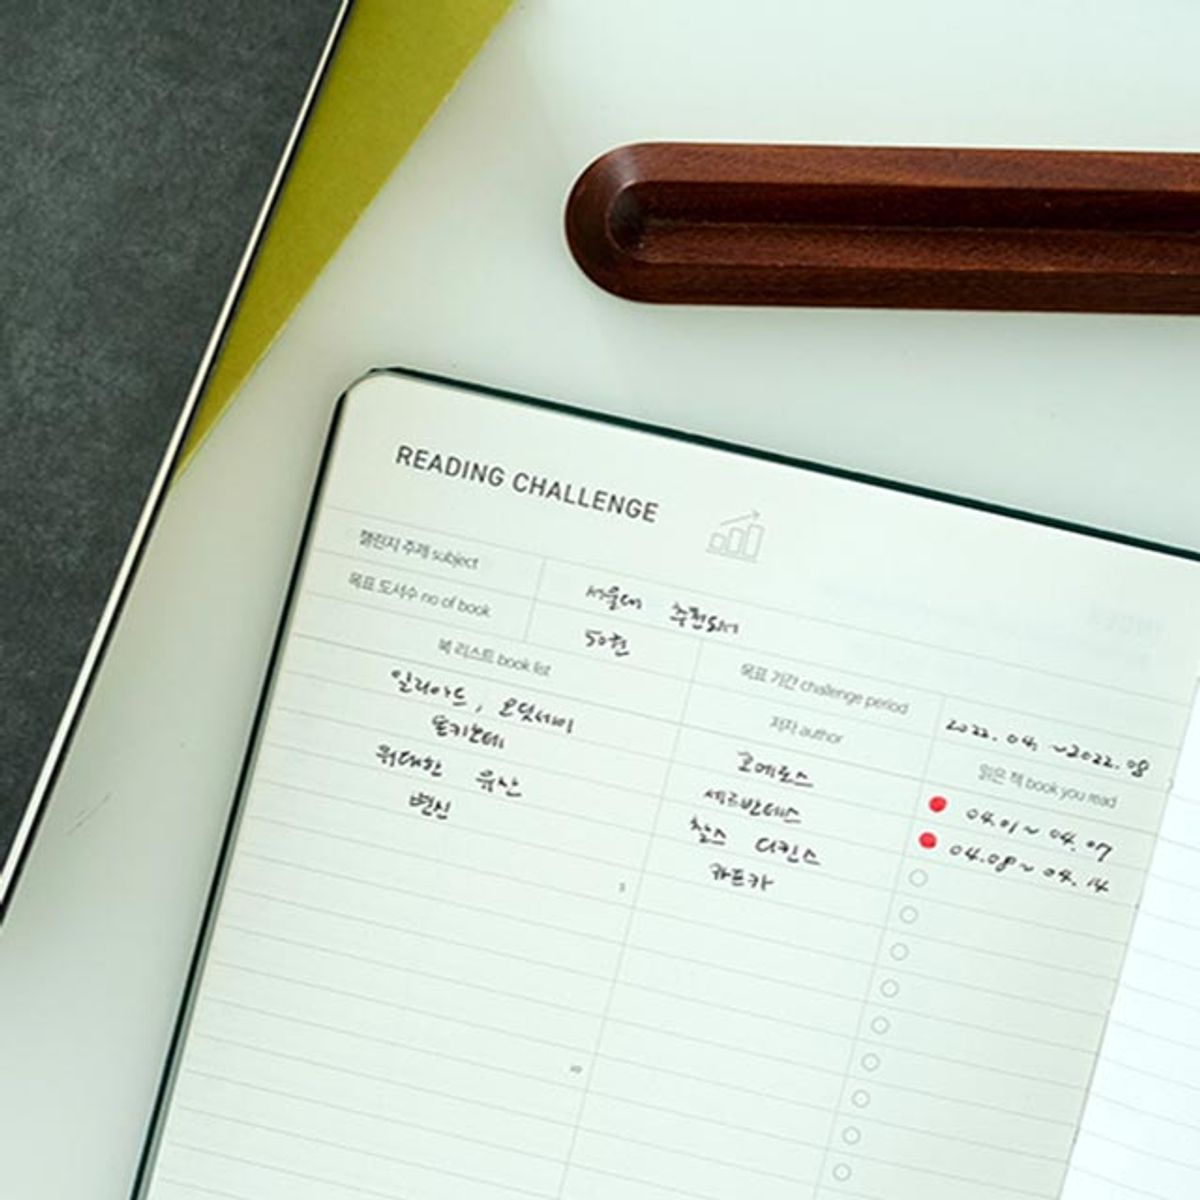 READING CHALLENGE
챌린지 주제 subject 서울대 추천도서
목표 도서수 no of book 50권 목표 기간 challenge period 2022. 04. ~2022. 08
북 리스트 book list 저자 author 읽은 책 book you read
일리아드, 오딧세이 호메로스 04.01 ~ 04.07
돈키호테 세르반테스 04.08 ~ 04.14
위대한 유산 찰스 디킨스
변신 카프카
5
10